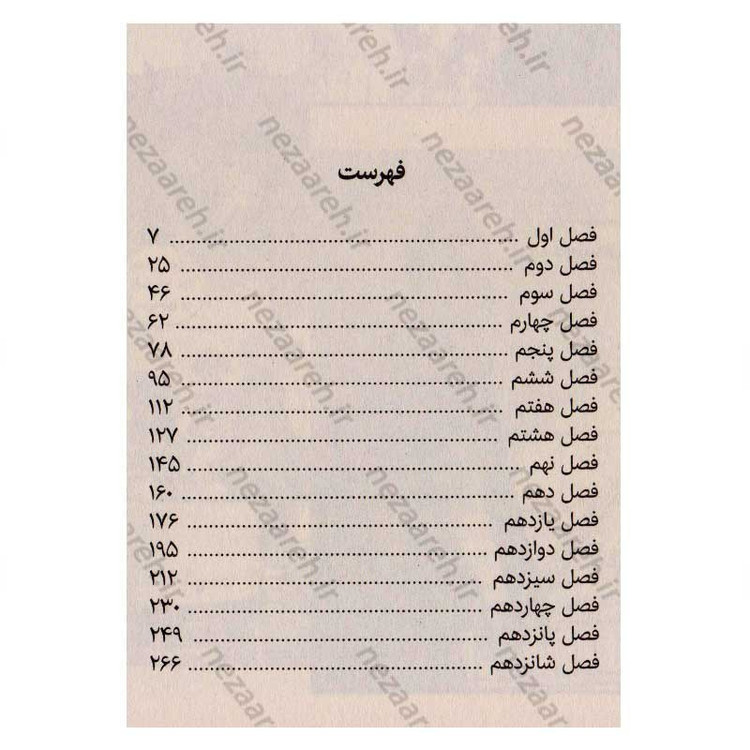 فهرست
فصل اول ۷
فصل دوم ۲۵
فصل سوم ۴۶
فصل چهارم ۶۲
فصل پنجم ۷۸
فصل ششم ۹۵
فصل هفتم ۱۱۲
فصل هشتم ۱۲۷
فصل نهم ۱۴۵
فصل دهم ۱۶۰
فصل یازدهم ۱۷۶
فصل دوازدهم ۱۹۵
فصل سیزدهم ۲۱۲
فصل چهاردهم ۲۳۰
فصل پانزدهم ۲۴۹
فصل شانزدهم ۲۶۶
nezaareh.ir